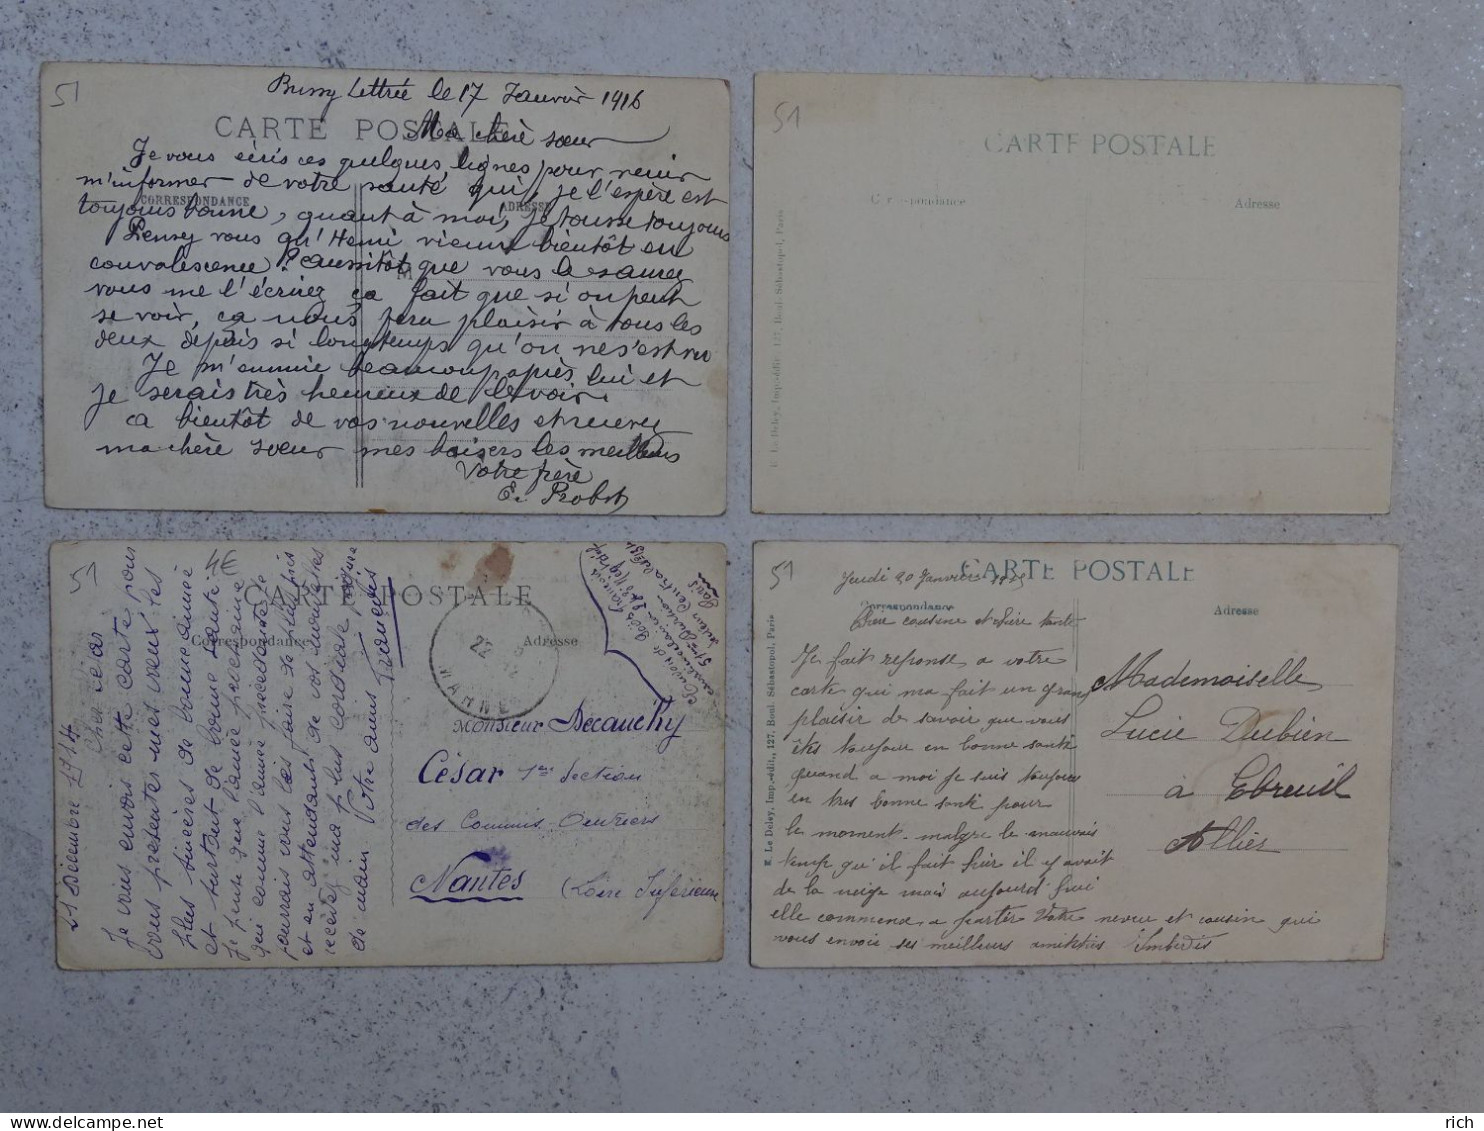 51
Bussy Lettrée le 17 Janvier 1916
CARTE POSTALE
Ma chère sœur
Je vous écris ces quelques lignes pour venir
m'informer de votre santé qui, je l'espère est
CORRESPONDANCE
ADRESSE
toujours bonne, quant à moi, je tousse toujours
Pensez vous qu'Henri vienne bientôt en
convalescence? aussitôt que vous le saurez
M
vous me l'écrirez ça fait que si on peut
se voir, ça nous fera plaisir à tous les
deux depuis si longtemps qu'on ne s'est vu
Je m'ennuie beaucoup après lui et
je serais très heureux de le voir.
a bientôt de vos nouvelles et recevez
ma chère sœur mes baisers les meilleurs
Votre frère
E. Probst
51
CARTE POSTALE
C r spondance
Adresse
E. Le Deley, Imp.-édit., 127, Boul. Sébastopol, Paris
51
4E
CARTE POSTALE
Correspondance
Adresse
21 Décembre 1914
Cher César
Je vous envois cette carte pour
vous présenter mes vœux les
plus sincères de bonne année
et surtout de bonne santé
Je pense que l'année prochaine
qui comme l'année précédente
pourrais vous les faire de plus près
et en attendant de vos nouvelles
recevez ma plus cordiale poignée
de main Votre amis
Francis
MARNE
Monsieur Decauchy
César 1ère Section
des Commis Ouvriers
Nantes (Loire Inférieure
51
Jeudi 20 Janvier
CARTE POSTALE
Correspondance
Adresse
Chère cousine et chère tante
Je fait reponse a votre
carte qui ma fait un grand
plaisir de savoir que vous
êtes toujour en bonne santé
quand a moi je suis toujour
en tres bonne santé pour
le moment malgre le mauvais
temp qu'il fait hier il y avait
de la neige mais aujourd hui
elle commence a parter Votre neveu et cousin qui
vous envoir ses meilleurs amitiés
Mademoiselle
Lucie Dubien
a Ebreuil
Allier
E. Le Deley, Imp.-édit., 127, Boul. Sébastopol, Paris
rich